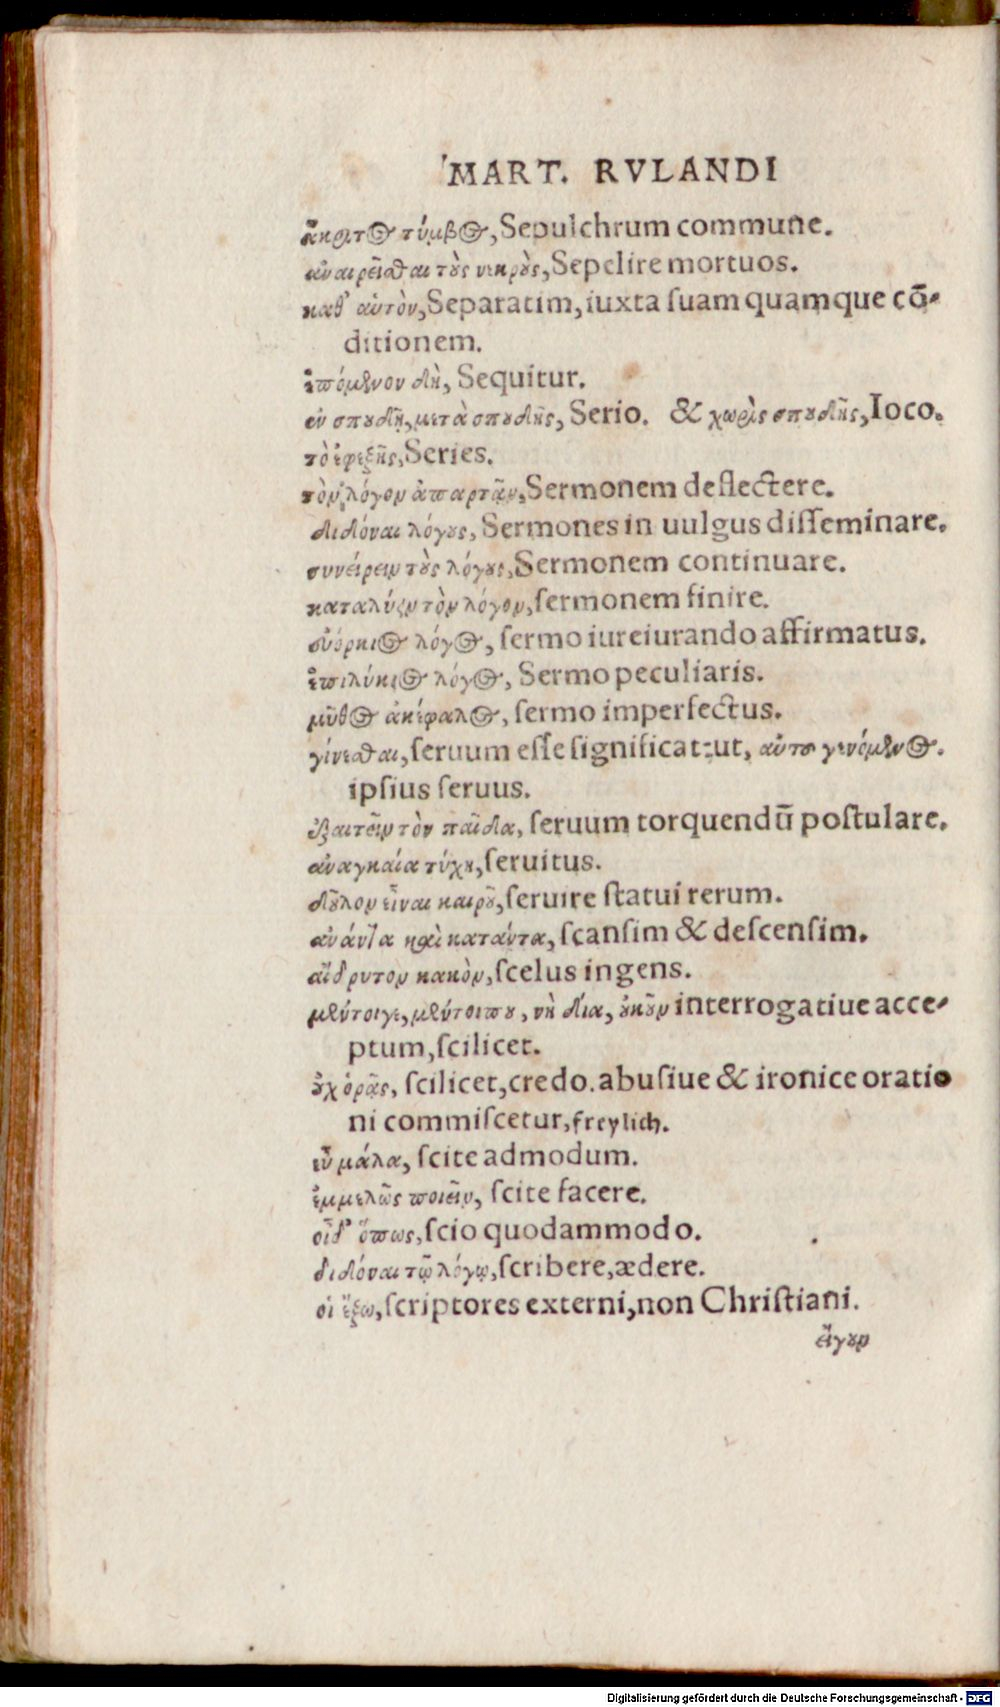 MART. RVLANDI
ἄκριτος τύμβος, Sepulchrum commune.
ἀναιρεῖσθαι τοὺς νεκροὺς, Sepelire mortuos.
καθ' αὑτὸν, Separatim, iuxta ſuam quamque cō-
ditionem.
ἑπόμενον δὴ, Sequitur.
ἐν σπουδῇ, μετὰ σπουδῆς, Serio. & χωρὶς σπουδῆς, Ioco.
τὸ ἐφεξῆς, Series.
τὸν λόγον ἀπαρτᾷν, Sermonem deflectere.
διδόναι λόγους, Sermones in uulgus diſſeminare.
συνείρειν τοὺς λόγους, Sermonem continuare.
καταλύειν τὸν λόγον, ſermonem finire.
ἐνόρκιος λόγος, ſermo iureiurando affirmatus.
ἐπιλύκιος λόγος, Sermo peculiaris.
μῦθος ἀκέφαλος, ſermo imperfectus.
γίνεσθαι, ſeruum eſſe ſignificat: ut, αὐτοῦ γενόμενος.
ipſius ſeruus.
ἐξαιτεῖν τὸν παῖδα, ſeruum torquendū poſtulare.
ἀναγκαία τύχη, ſeruitus.
δοῦλον εἶναι καιροῦ, ſeruire ſtatui rerum.
ἀνάντα καὶ κατάντα, ſcanſim & deſcenſim.
ἀΐδρυτον κακὸν, ſcelus ingens.
μέντοιγε, μέντοιπου, νὴ δία, οὐκοῦν interrogatiue acce-
ptum, ſcilicet.
οὐχ ὁρᾷς, ſcilicet, credo. abuſiue & ironice oratio
ni commiſcetur, freylich.
εὖ μάλα, ſcite admodum.
ἐμμελῶς ποιεῖν, ſcite facere.
οἶδ' ὅπως, ſcio quodammodo.
διδόναι τῷ λόγῳ, ſcribere, ædere.
οἱ ἔξω, ſcriptores externi, non Chriſtiani.
εἴγουν
Digitalisierung gefördert durch die Deutsche Forschungsgemeinschaft - DFG